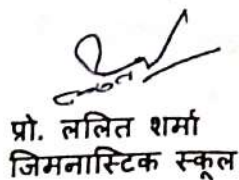 प्रो. ललित शर्मा
जिमनास्टिक स्कूल